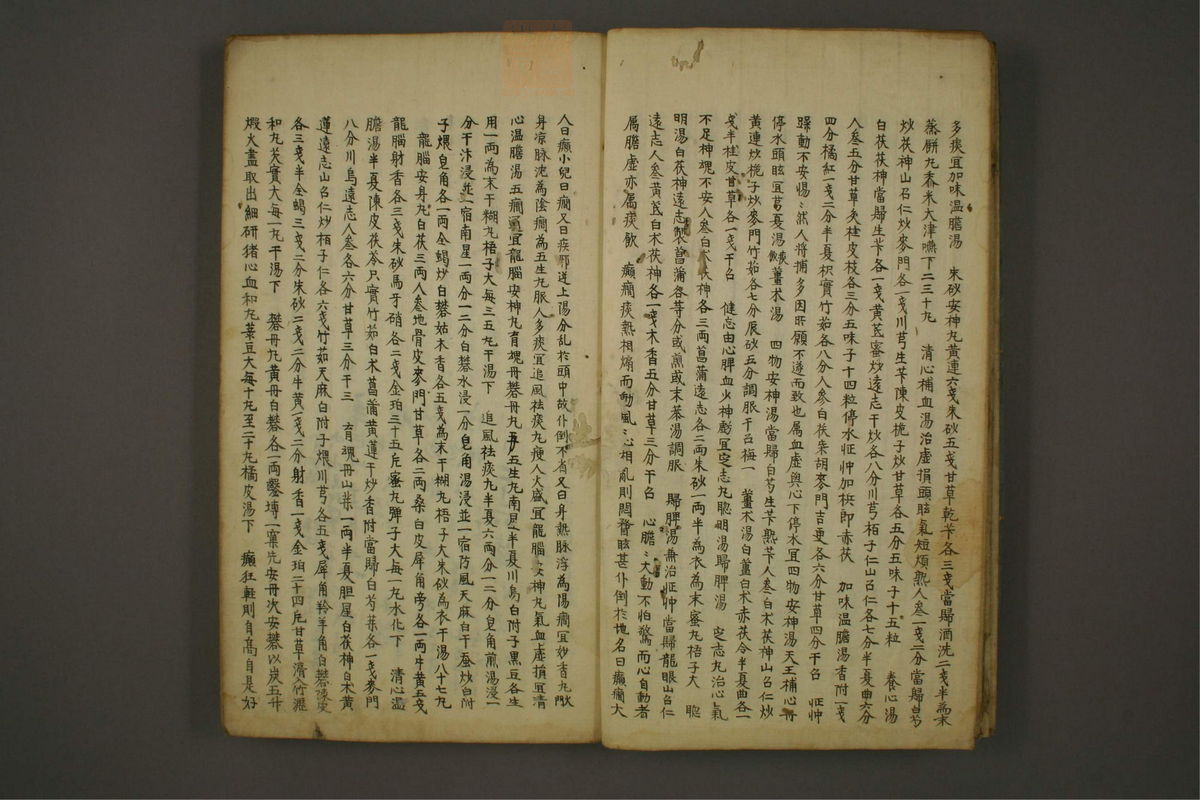 多痰宜加味温膽湯 朱砂安神丸黃連六戔朱砂五戔甘草乾芐各三戔當歸酒洗二戔半為末
蒸餠丸黍米大津嚥下二三十丸 清心補血湯治虛損頭眩氣短煩熱人參一戔二分當歸白芍
炒茯神山召仁炒麥門各一戔川芎生芐陳皮梔子炒甘草各五分五味子十五粒 養心湯
白茯茯神當歸生芐各一戔黃芪蜜炒遠志干炒各八分川芎栢子仁山召仁各七分半夏曲六分
人參五分甘草灸桂皮枝各三分五味子十四粒停水怔忡加梹郎赤茯 加味温膽湯香附一戔
四分橘紅一戔二分半夏枳實竹茹各八分人參白茯柴胡麥門吉更各六分甘草四分干召 怔忡
躁動不安惕〻然人將捕多因所願不遂而致也属血虛與心下停水宜四物安神湯天王補心丹
停水頭眩宜芎夏湯 薑朮湯 四物安神湯當歸白芍生芐熟芐人參白朮茯神山召仁炒
黃連炒梔子炒麥門竹茹各七分辰砂五分調服干召梅一 薑朮湯白薑白朮赤茯令半夏曲各一
戔半桂皮甘草各一戔干召 健忘由心脾血少神虧宜定志丸聰明湯歸脾湯 定志丸治心氣
不足神魂不安人參白茯茯神各三両菖蒲遠志各二両朱砂一両半為衣為末蜜丸梧子大 聰
明湯白茯神遠志製菖蒲各等分或煎或末茶湯調服 歸脾湯兼治怔忡當歸龍眼山召仁
遠志人參黃芪白朮茯神各一戔木香五分甘草三分干召 心膽〻大動不怕驚而心自動者
属膽虛亦属痰飮 癲癇痰熱相煽而動風〻心相亂則悶瞀眩甚仆倒於地名曰癲癇大
人曰癲小兒曰癇又曰疾邪逆上陽分乱於頭中故仆倒不省又曰身熱脉浮為陽癇宜妙香丸
身凉脉沈為陰癇為五生丸服人多痰宜追風祛痰丸瘦人火盛宜龍腦安神丸氣血虛損宜清
心温膽湯五癇宜龍腦安神丸育魂丹礬丹丸 五生丸南星半夏川烏白附子黑豆各生
用一両為末干糊丸梧子大每三五丸干湯下 追風祛痰丸半夏六両分一二分皂角煎湯浸一
分干汁浸並一宿南星一両分一二分白礬水浸一分皂角湯浸並一宿防風天麻白干蚕炒白附
子煨皂角各一両全蝎炒白礬姑木香各五戔為末干糊丸梧子大朱砂為衣干湯八十七丸
龍腦安身丸白茯三両人參地骨皮麥門甘草各二両桑白皮犀角旁各一両牛黃五戔
龍腦射香各三戔朱砂馬牙硝各二戔金珀三十五片蜜丸彈子大每一丸水化下 清心温
膽湯半夏陳皮茯苓只實竹茹白朮菖蒲黃蓮干炒香附當歸白芍茶各一戔麥門
八分川烏遠志人參各六分甘草三分干三 育魂丹山茶一両半夏胆星白茯神白朮黃
蓮遠志山召仁炒栢子仁各六戔竹茹天麻白附子煨川芎各五戔犀角羚羊角白礬陳皮
各三戔半全蝎三戔二分朱砂二戔二分牛黃一戔二分射香一戔金珀二十四片甘草膏入竹瀝
和丸芡實大每一丸干湯下 礬丹丸黃丹白礬各一両 一窠先安丹次安礬以炭五斤
煅火盡取出細研猪心血和丸菉豆大每十丸至二十丸橘皮湯下 癲狂輕則自高自是好